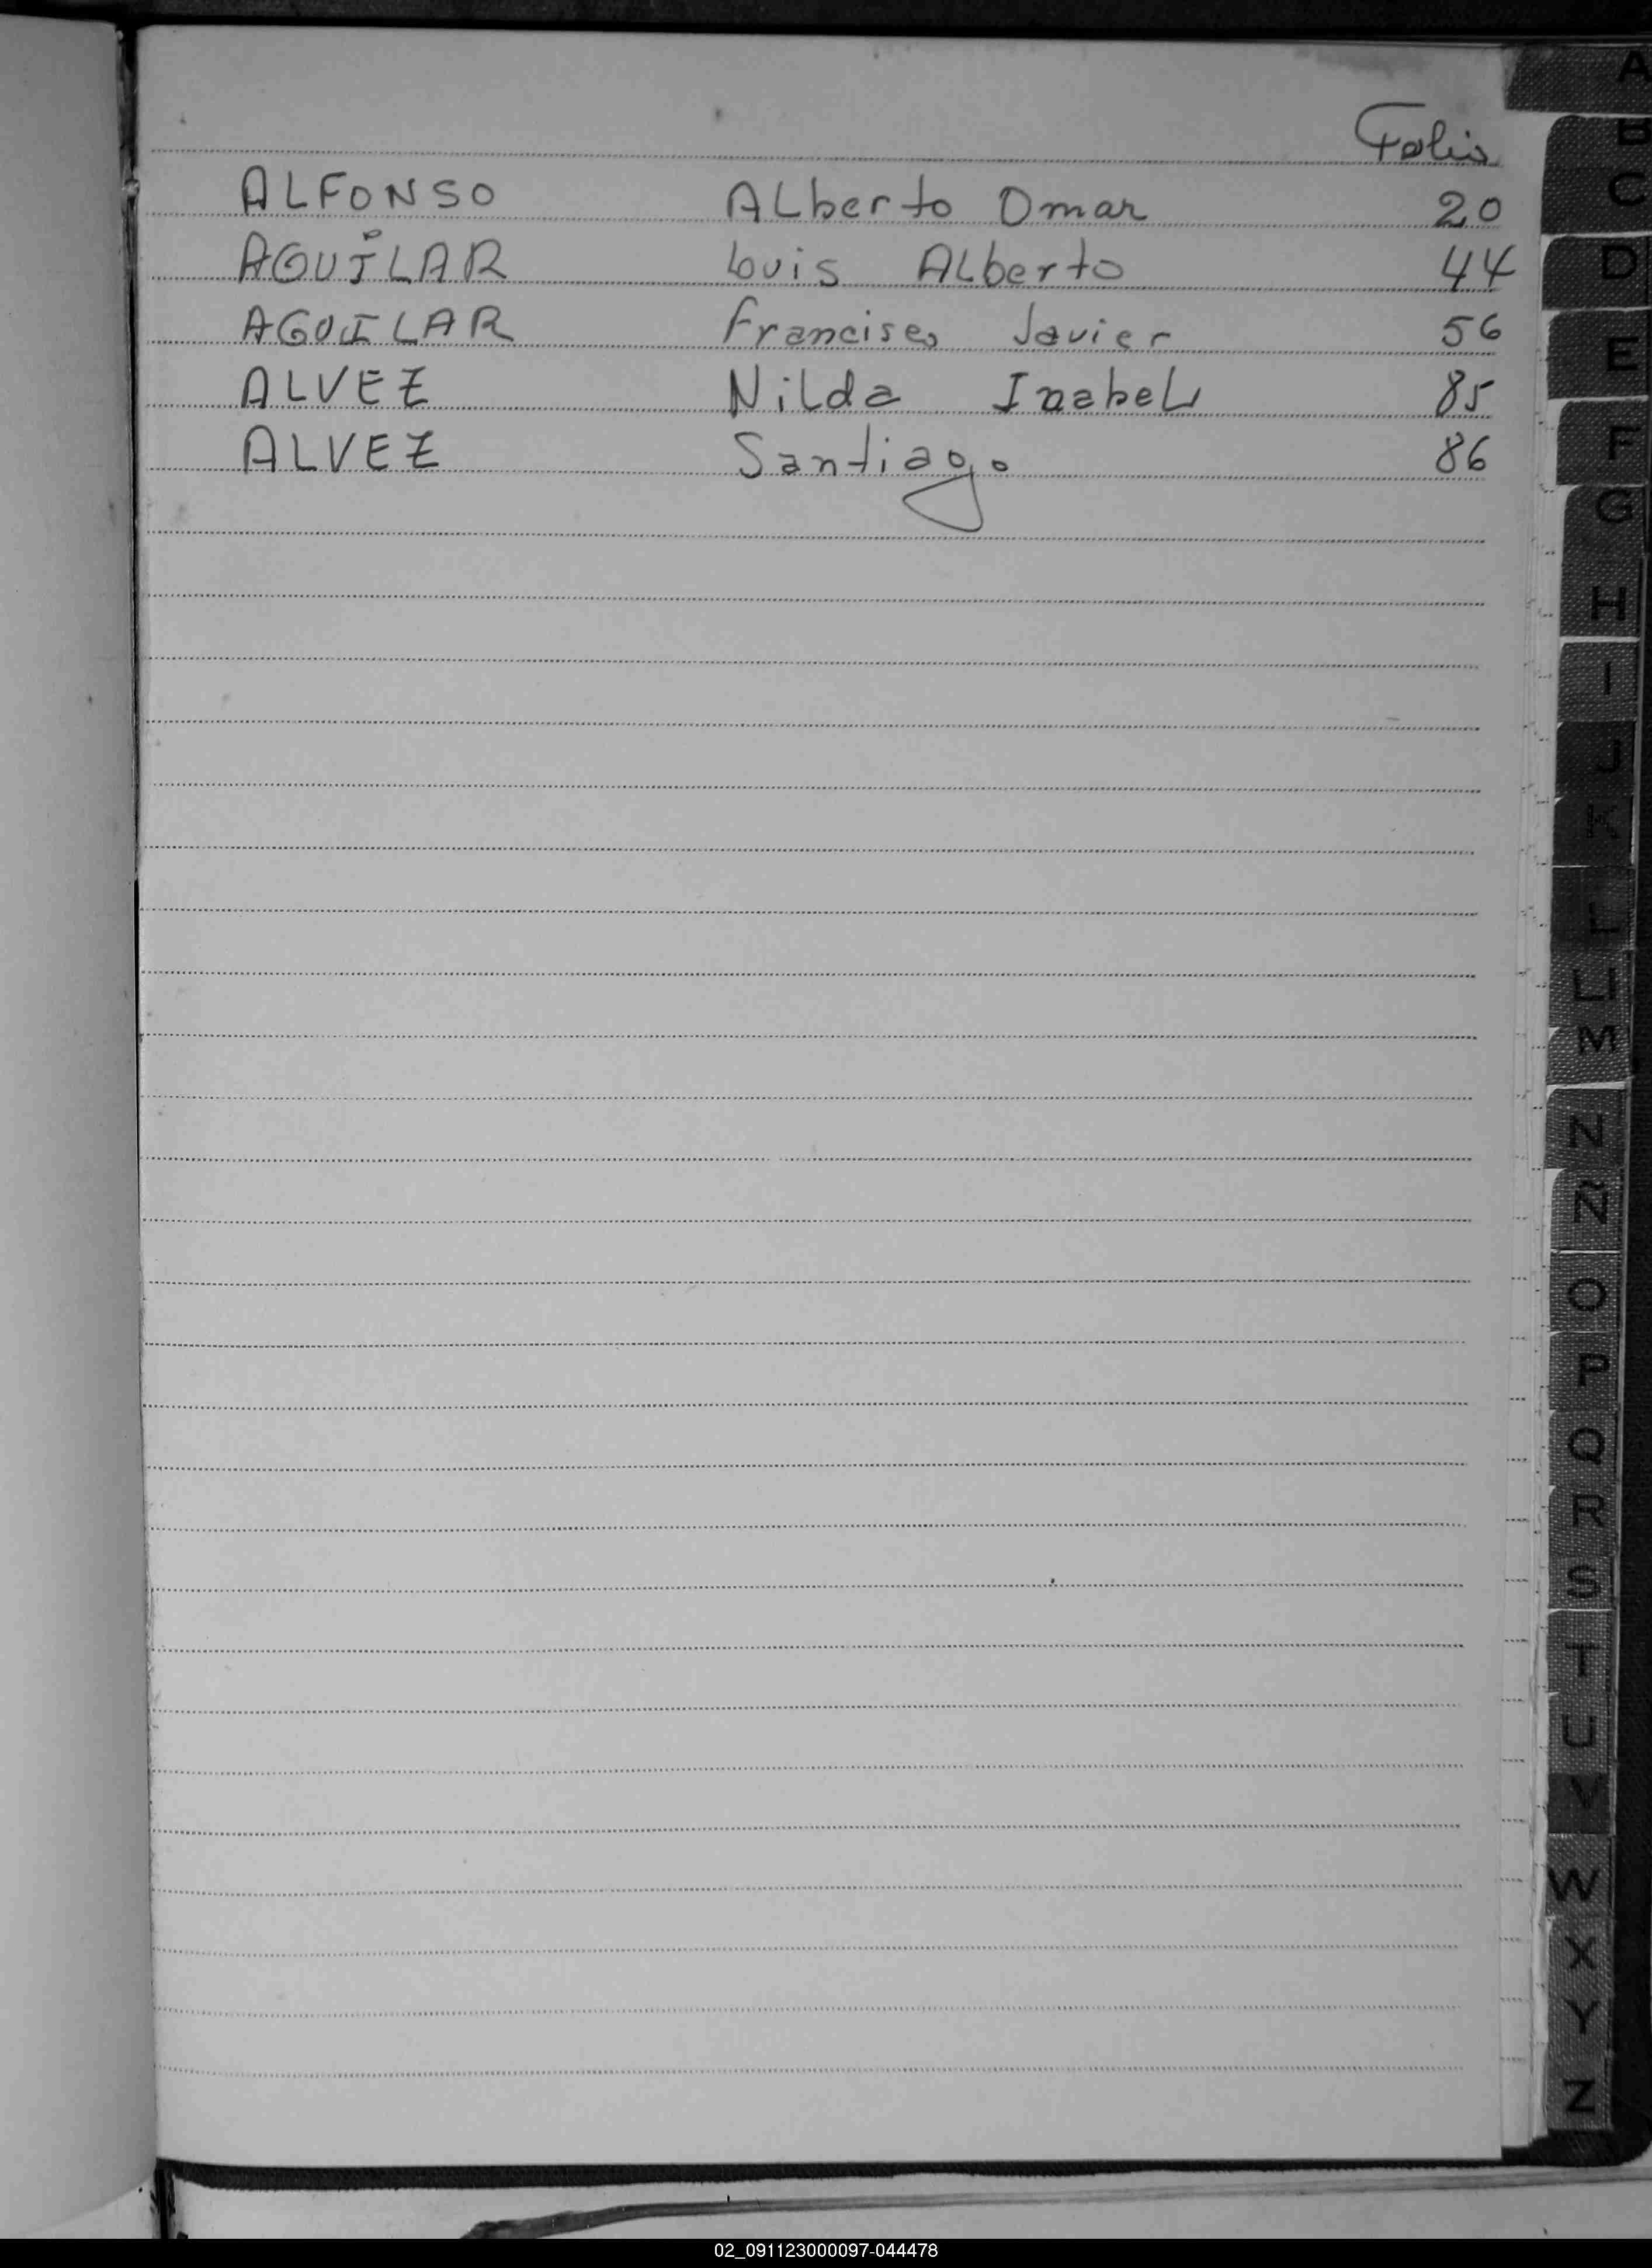 Folio
ALFONSO Alberto Omar 20
AGUILAR Luis Alberto 44
AGUILAR Francisco Javier 56
ALVEZ Nilda Izabel 85
ALVEZ Santiago 86
A
B
C
D
E
F
G
H
I
J
K
L
LL
M
N
Ñ
O
P
Q
R
S
T
U
V
W
X
Y
Z
02_091123000097-044478